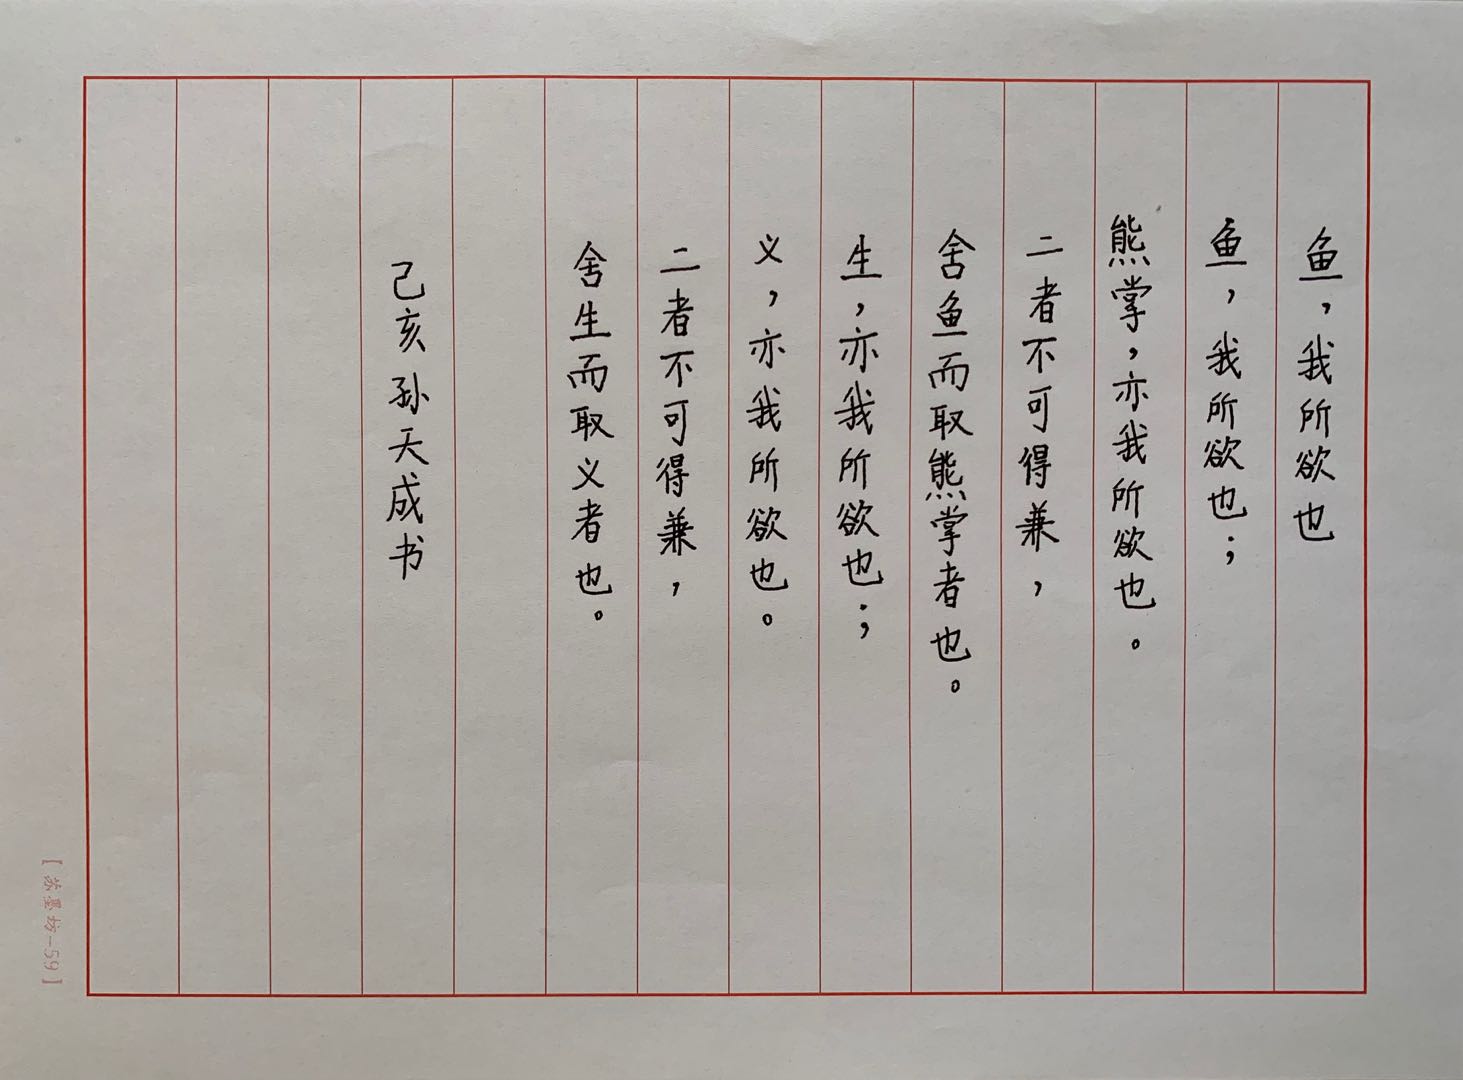 鱼，我所欲也
鱼，我所欲也；
熊掌，亦我所欲也。
二者不可得兼，
舍鱼而取熊掌者也。
生，亦我所欲也；
义，亦我所欲也。
二者不可得兼，
舍生而取义者也。
己亥孙天成书
【苏墨坊-59】